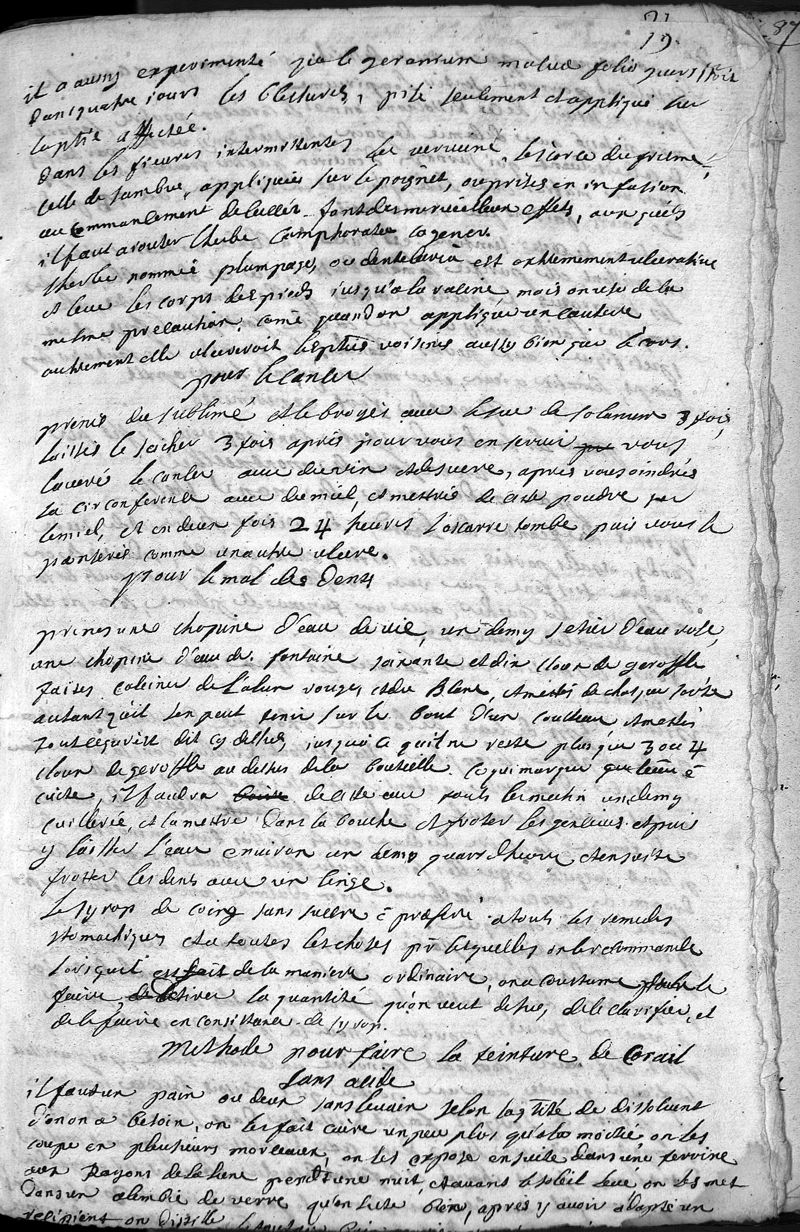 79.
87
il a aussy experimenté que le geranium malvæ folio guerissoit
Dans quatre jours les blessures, pilé seulement et appliqué sur
la ptie affectée.
Dans les fievres intermittentes la verveine, l'ecorce du fresne,
celle de sambuc, appliquées sur le poignet, ou prises en infusion
au commancement de l'accés font des merveilleux effets, auxquels
il faut ajouter l'herbe camphorata
l'herbe nommée plumpages, ou dentelaria est extremement ulcerative
et leve les corps des pieds jusqu'a la racine mais on use de la
mesme precaution, comē quand on applique un cautere
autrement elle ulcereroit les pties voisines aussy bien que le cors.
pour le Cancer
prenes du sublimé et le broyés avec le suc de solanum 3 fois,
laissés le secher 3 fois aprés pour vous en servir vous
laverés le cancer avec du vin et du sucre, aprés vous oindrés
la circonference avec du miel, et mettrés de cette poudre sur
le miel, et en deux fois 24 heures l'escarre tombe puis vous le
panserés comme un autre ulcere.
Pour le mal des Dents
prenes une chopine d'eau de vie, un demy setier d'eau rose,
une chopine d'eau de fontaine soixante et dix cloux de geroffle
faites calciner de l'alun rouge, et du Blanc, et mettés de chasque sorte
autant qu'il s'en peut tenir sur le bout d'un couteau et mettés
tout ce qui est dit cy dessus jusqu'a ce qu'il ne reste plus que 3 ou 4
cloux de geroffle au dessus de la bouteille. ce qui marque que l'eau ē
cuite, il faudra de cette eau touts les matin un demy
cuillerée, et la mettre dans la bouche et froter les gencives et puis
y laisser l'eau environ un demy quart d'heure et ensuite
frotter les dents avec un linge.
Le syrop de coing sans sucre ē preferé a touts les remedes
stomachiques et a toutes les choses pr lesquelles on le recommande
lorsqu'il est fait de la maniere ordinaire, on a coutume de le
faire, de tirer la quantité qu'on veut de suc, de le clarifier, et
de le faire en consistance de syrop.
Methode pour faire la teinture de Corail
sans acide
il faut un pain ou deux sans levain selon la qtité de dissolvant
d'on on a besoin, on les fait cuire un peu plus qu'a la moitié on les
coupe en plusieurs morceaux, on les expose ensuite dans une terrine
aux Rayons de la lune pendt une nuit, et avant le soleil levé on les met
dans un alembic de verre qu'on lute bien, aprés y avoir adapté un
recipient on distille